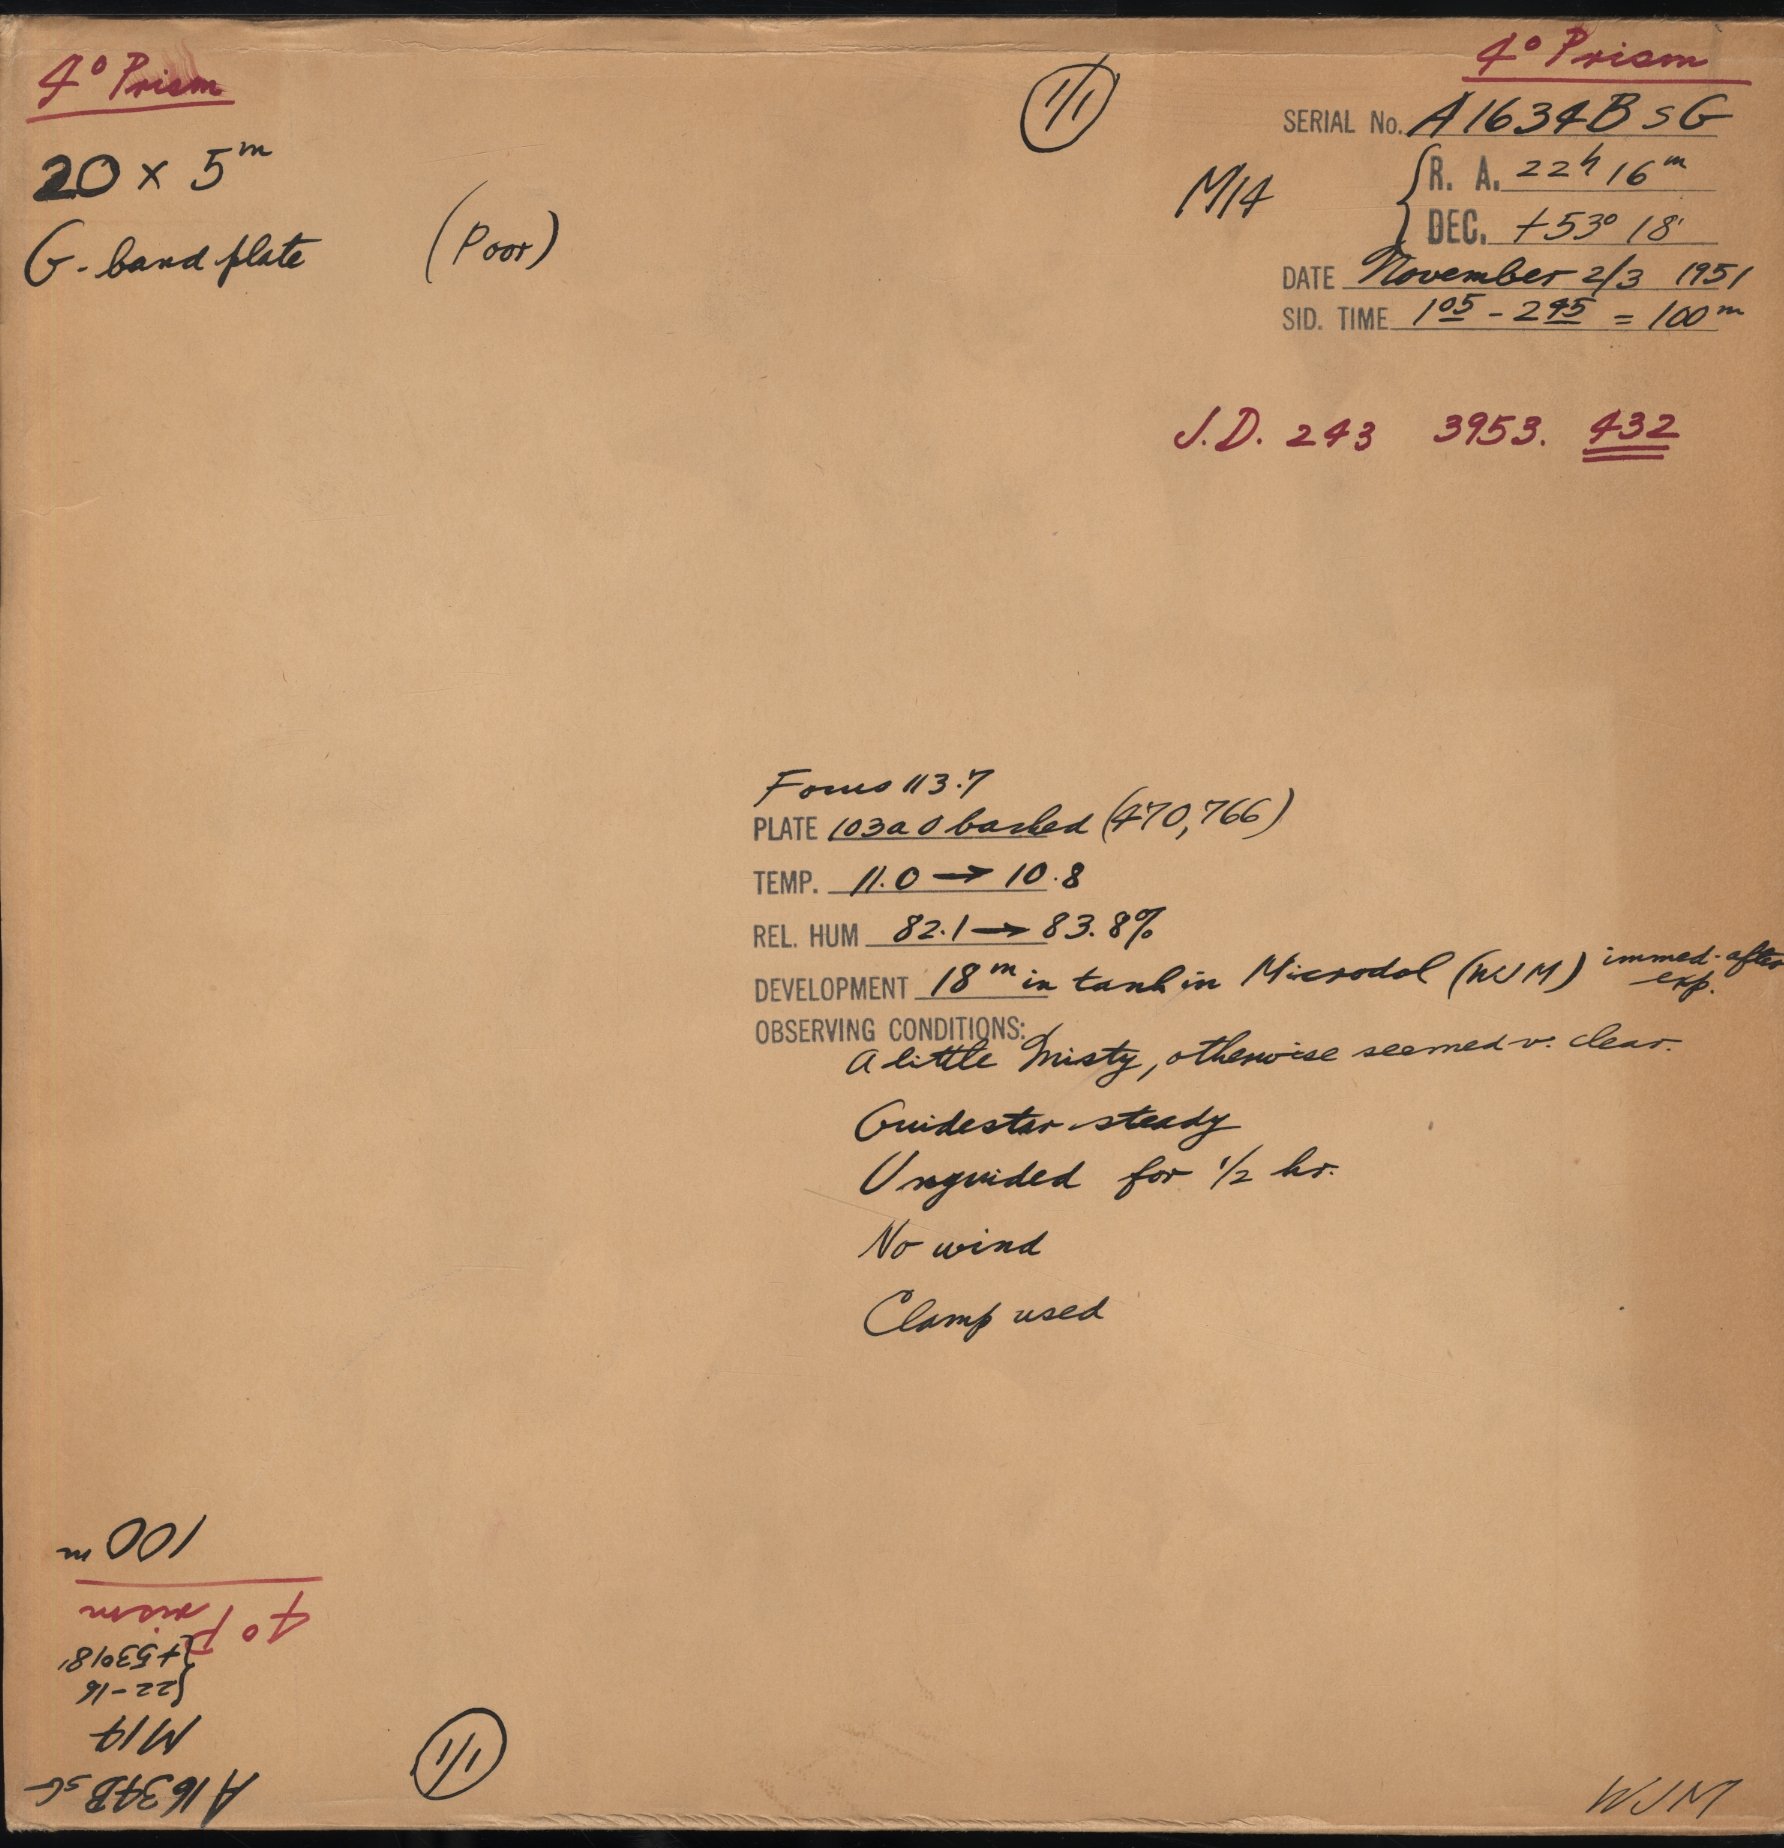 4° Prism
20 x 5m
G-band plate (Poor)
1/1
4° Prism
SERIAL No. A1634BsG
M14
R. A. 22h 16m
DEC. +53° 18'
DATE November 2/3 1951
SID. TIME 1 05 - 2 45 = 100m
J.D. 243 3953. 432
Focus 113.7
PLATE 103a O backed (470,766)
TEMP. 11.0 → 10.8
REL. HUM 82.1 → 83.8%
DEVELOPMENT 18m in tank in Microdol (WJM) immed. after exp.
OBSERVING CONDITIONS:
A little misty, otherwise seemed v. clear.
Guidestar steady
Unguided for 1/2 hr.
No wind
Clamp used
A1634BsG
M14
22-16
+53°18'
4° Prism
100m
1/1
WJM